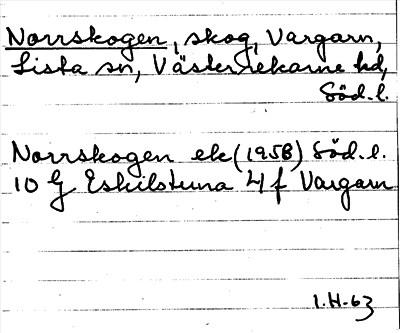 Norrskogen, skog, Vargarn,
Lista sn, Västerrekarne hd,
Söd.l.
Norrskogen ek (1958) Söd.l.
10 G Eskilstuna 4f Vargarn
I.H-63